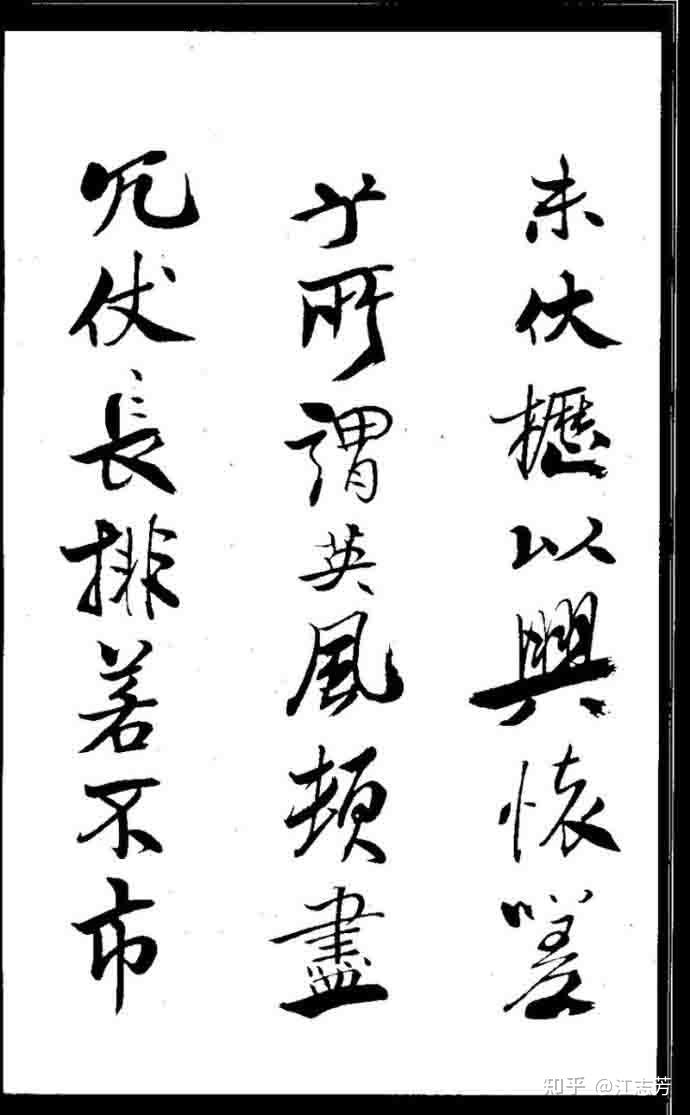 未伏櫪以興懷嗟
乎所謂英風頓盡
冗仗長排若不市
知乎 @江志芳